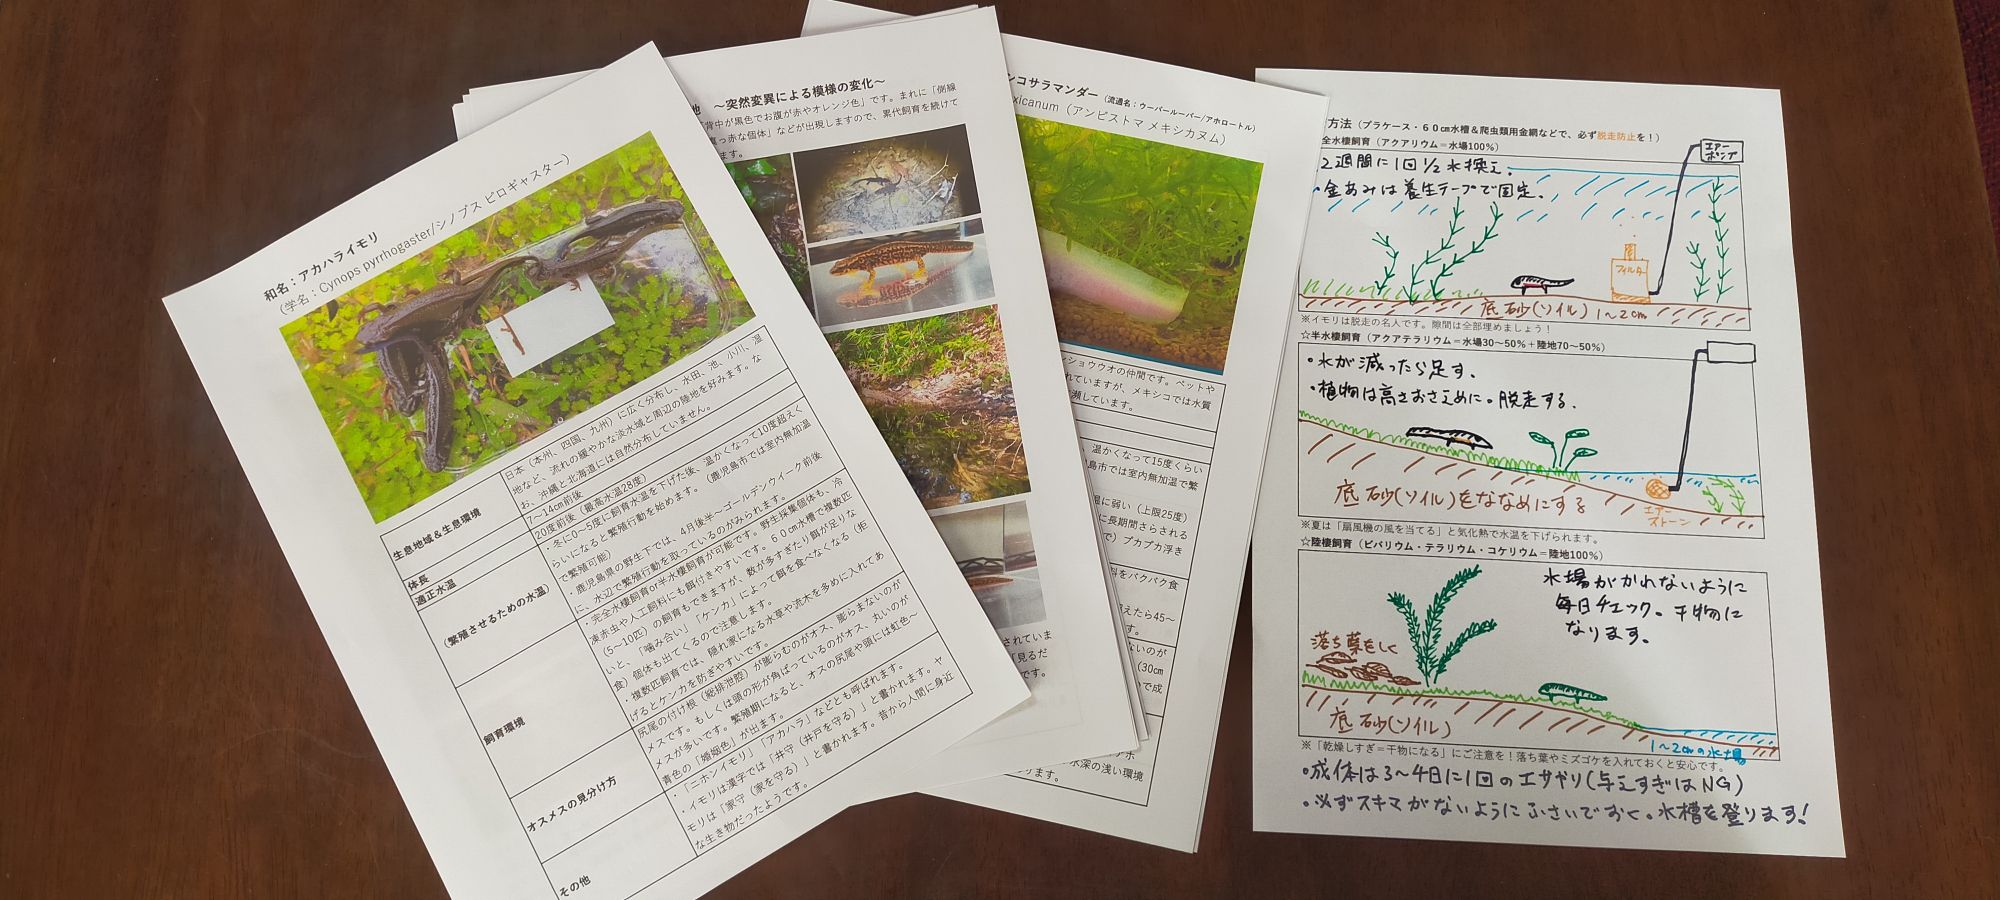 和名：アカハライモリ
（学名：Cynops pyrrhogaster/シノプス ピロギャスター）
生息地域＆生息環境
日本（本州、四国、九州）に広く分布し、水田、池、小川、湿
地など、流れの緩やかな淡水域と周辺の陸地を好みます。な
お、沖縄と北海道には自然分布していません。
体長
7～14cm前後
適正水温
20度前後（最高水温28度）
（繁殖させるための水温）
・冬に0～5度に飼育水温を下げた後、温かくなって10度超えく
らいになると繁殖行動を始めます。（鹿児島市では室内無加温
で繁殖可能）
・鹿児島県の野生下では、4月後半～ゴールデンウイーク前後
に、水辺で繁殖行動を取っているのがみられます。
飼育環境
・完全水棲飼育or半水棲飼育が可能です。野生採集個体も、冷
凍赤虫や人工飼料にも餌付きやすいです。６０㎝水槽で複数匹
（5～10匹）の飼育もできますが、数が多すぎたり餌が足りな
いと、「噛み合い」「ケンカ」によって餌を食べなくなる（拒
食）個体も出てくるので注意します。
・複数匹飼育では、隠れ家になる水草や流木を多めに入れてあ
げるとケンカを防ぎやすいです。
オスメスの見分け方
尻尾の付け根（総排泄腔）が膨らむのがオス、膨らまないのが
メスです。もしくは頭の形が角ばっているのがオス、丸いのが
メスが多いです。繁殖期になると、オスの尻尾や頭には虹色～
青色の「婚姻色」が出ます。
その他
・「ニホンイモリ」「アカハラ」などとも呼ばれます。
・イモリは漢字では「井守（井戸を守る）」と書かれます。ヤ
モリは「家守（家を守る）」と書かれます。昔から人間に身近
な生き物だったようです。
～突然変異による模様の変化～
背中が黒色でお腹が赤やオレンジ色」です。まれに「側線
っ赤な個体」などが出現しますので、累代飼育を続けて
ます。
されていま
「見るだ
です。
ンコサラマンダー（流通名：ウーパールーパー/アホロートル）
xicanum（アンビストマ メキシカヌム）
ンショウウオの仲間です。ペットや
れていますが、メキシコでは水質
瀕しています。
、温かくなって15度くらい
島市では室内無加温で繁
温に弱い（上限25度）
に長期間さらされる
で）プカプカ浮き
料をパクパク食
えたら45～
す。
ないのが
（30cm
で成
水深の浅い環境
ります。
方法（プラケース・６０㎝水槽＆爬虫類用金網などで、必ず脱走防止を！）
全水棲飼育（アクアリウム＝水場100％）
エアーポンプ
2週間に1回1/2水換え。
・金あみは養生テープで固定。
フィルター
底砂(ソイル) 1～2cm
※イモリは脱走の名人です。隙間は全部埋めましょう！
☆半水棲飼育（アクアテラリウム＝水場30～50％＋陸地70～50％）
・水が減ったら足す。
・植物は高さおさえめに。脱走する。
底砂(ソイル)をななめにする
エアーストーン
※夏は「扇風機の風を当てる」と気化熱で水温を下げられます。
☆陸棲飼育（ビバリウム・テラリウム・コケリウム＝陸地100％）
水場がかれないように
毎日チェック。干物に
なります。
落ち葉をしく
底砂(ソイル)
1～2cmの水場
※「乾燥しすぎ＝干物になる」にご注意を！落ち葉やミズゴケを入れておくと安心です。
・成体は3～4日に1回のエサやり(与えすぎはNG)
・必ずスキマがないようにふさいでおく。水槽を登ります!